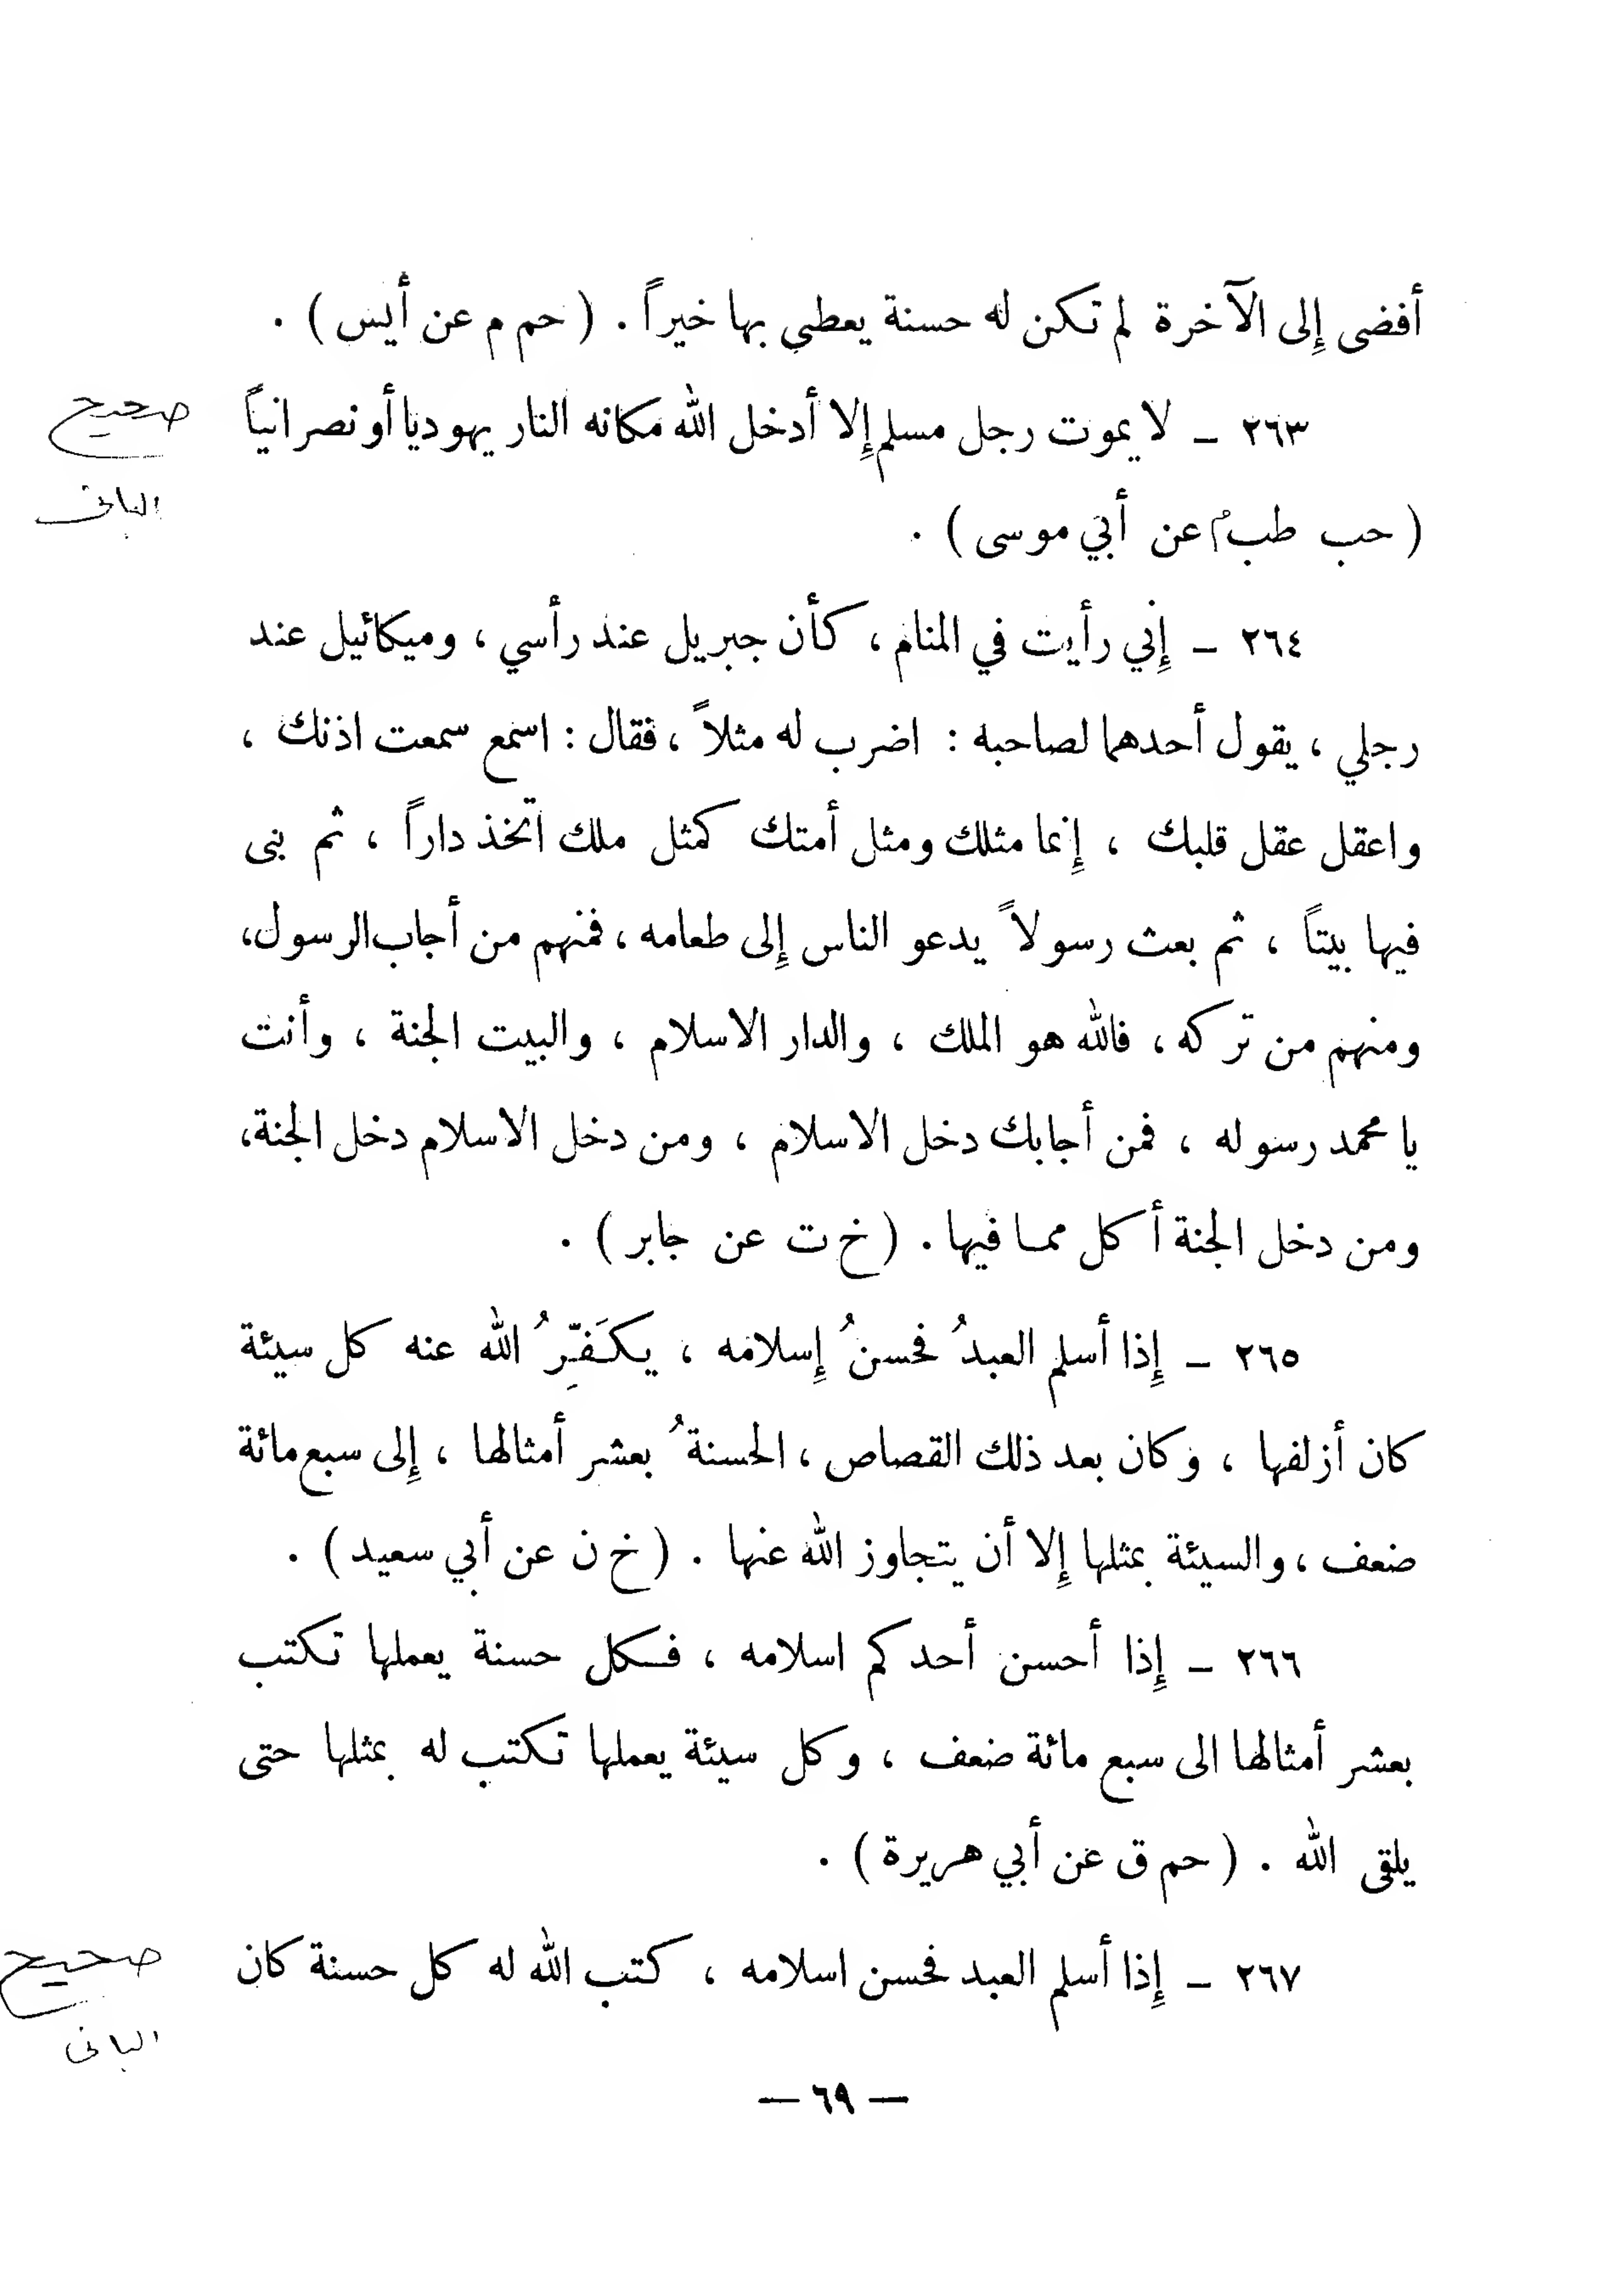 أفضى إِلى الآخرة لم تكن له حسنة يعطي بها خيراً . ( حم م عن أنيس ) .
٢٦٣ – لا يموت رجل مسلم إِلا أدخل الله مكانه النار يهوديا أو نصرانياً
صحيح
الباني
( حب طب م عن أبي موسى ) .
٢٦٤ – إِني رأيت في المنام ، كأن جبريل عند رأسي ، وميكائيل عند
رجلي ، يقول أحدهما لصاحبه : اضرب له مثلاً ، فقال : اسمع سمعت اذنك ،
واعقل عقل قلبك ، إِنما مثلك ومثل أمتك كمثل ملك اتخذ داراً ، ثم بنى
فيها بيتاً ، ثم بعث رسولاً يدعو الناس إِلى طعامه ، فمنهم من أجاب الرسول،
ومنهم من تركه ، فالله هو الملك ، والدار الاسلام ، والبيت الجنة ، وأنت
يا محمد رسوله ، فمن أجابك دخل الاسلام ، ومن دخل الاسلام دخل الجنة،
ومن دخل الجنة أكل مما فيها . ( خ ت عن جابر ) .
٢٦٥ – إِذا أسلم العبدُ فحسنُ إِسلامه ، يكَفِّرُ الله عنه كل سيئة
كان أزلفها ، وكان بعد ذلك القصاص ، الحسنةُ بعشر أمثالها ، إِلى سبع مائة
ضعف ، والسيئة بمثلها إِلا أن يتجاوز الله عنها . ( خ ن عن أبي سعيد ) .
٢٦٦ – إِذا أحسن أحدكم اسلامه ، فكل حسنة يعملها تكتب
بعشر أمثالها الى سبع مائة ضعف ، وكل سيئة يعملها تكتب له بمثلها حتى
يلقى الله . ( حم ق عن أبي هريرة ) .
٢٦٧ – إِذا أسلم العبد فحسن اسلامه ، كتب الله له كل حسنة كان
صحيح
الباني
— ٦٩ —